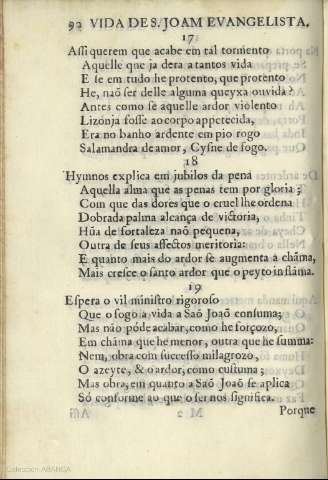 92 VIDA DE S. JOAM EVANGELISTA.
17
Assi querem que acabe em tal tormento
Aquelle que ja dera a tantos vida
E se em tudo he protento, que protento
He, naõ ser delle alguma queyxa ouvida?
Antes como se aquelle ardor violento
Lizonja fosse ao corpo appetecida,
Era no banho ardente em pio rogo
Salamandra de amor, Cysne de fogo.
18
Hymnos explica em jubilos da pena
Aquella alma que as penas tem por gloria;
Com que das dores que o cruel lhe ordena
Dobrada palma alcança de victoria,
Hũa de fortaleza naõ pequena,
Outra de seus affectos meritoria:
E quanto mais do ardor se augmenta a chãma,
Mais cresce o santo ardor que o peyto inflãma.
19
Espera o vil ministro rigoroso
Que o fogo a vida a Saõ Joaõ consuma;
Mas não póde acabar, como he forçozo,
Em chãma que he menor, outra que he summa:
Nem, obra com successo milagrozo,
O azeyte, & o ardor, como custuma;
Mas obra, em quanto a Saõ Joaõ se aplica
Só conforme ao que o ser nos significa.
Porque
Colección ABANCA